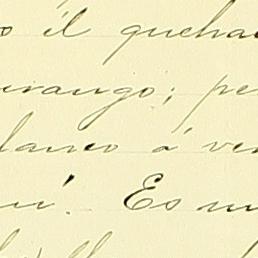 o il quehac
urango; pe
lanco á ver
uí. Es mu